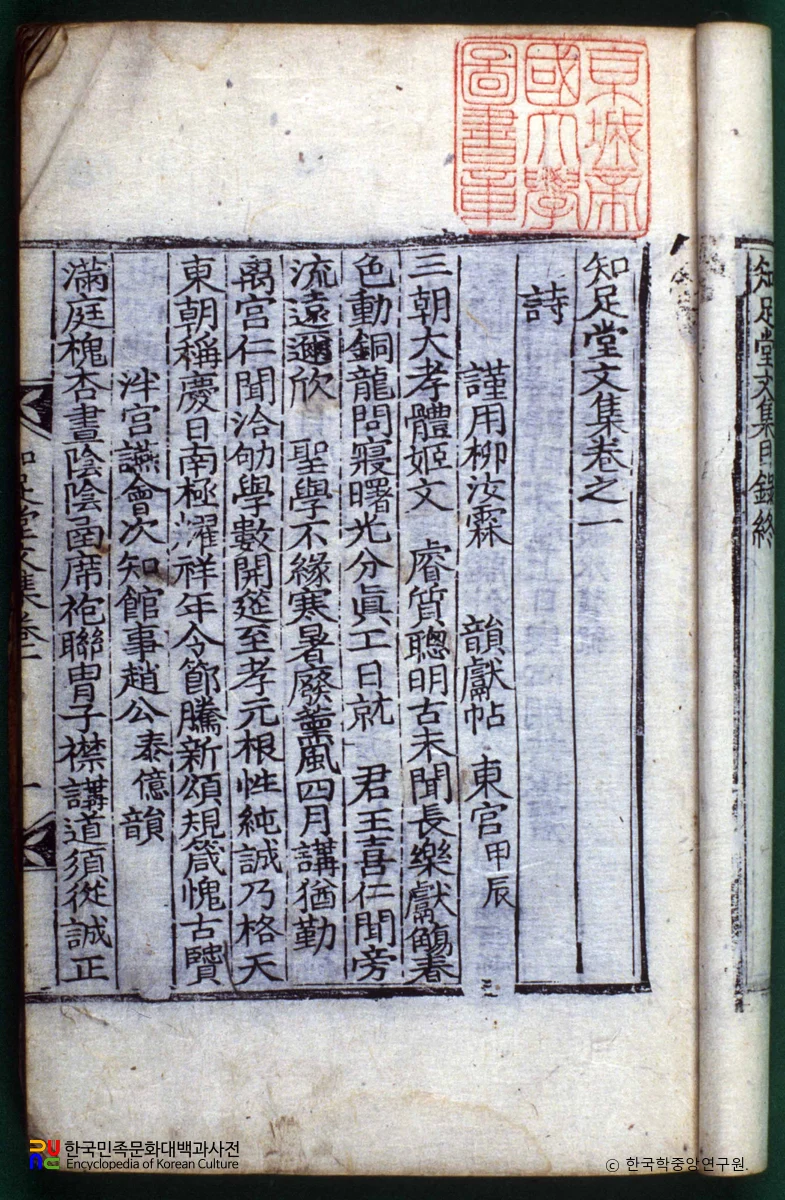 京城帝
國大學
圖書章
知足堂文集目錄終
知足堂文集卷之一
詩
謹用柳汝霖 韻獻帖 東宮甲辰
三朝大孝體姬文 睿質聰明古未聞長樂獻觴春
色動銅龍問寢曙光分眞工日就 君王喜仁聞旁
流遠邇欣 聖學不緣寒暑廢薰風四月講猶勤
离宮仁聞洽 學數開筵至孝元根性純誠乃格天
東朝稱慶日南極耀祥年令節騰新頌規箴愧古賢
泮宮讌會次知館事趙公泰億韻
滿庭槐杏晝陰陰函席袍聯胄子襟講道須從誠正
知足堂文集卷一
一
한국민족문화대백과사전
Encyclopedia of Korean Culture
© 한국학중앙연구원.